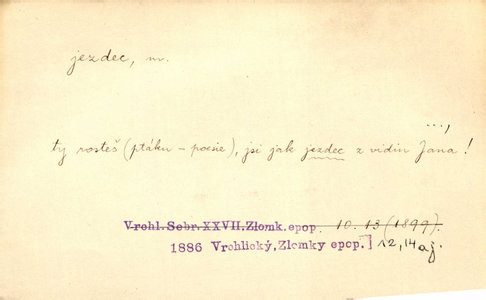 jezdec, m.
...,
ty rosteš (ptáku – poesie), jsi jak jezdec z vidin Jana!
Vrchl. Sebr. XXVII. Zlomk. epop. 10. 13 (1899).
1886 Vrchlický, Zlomky epop.] 12, 14 aj.